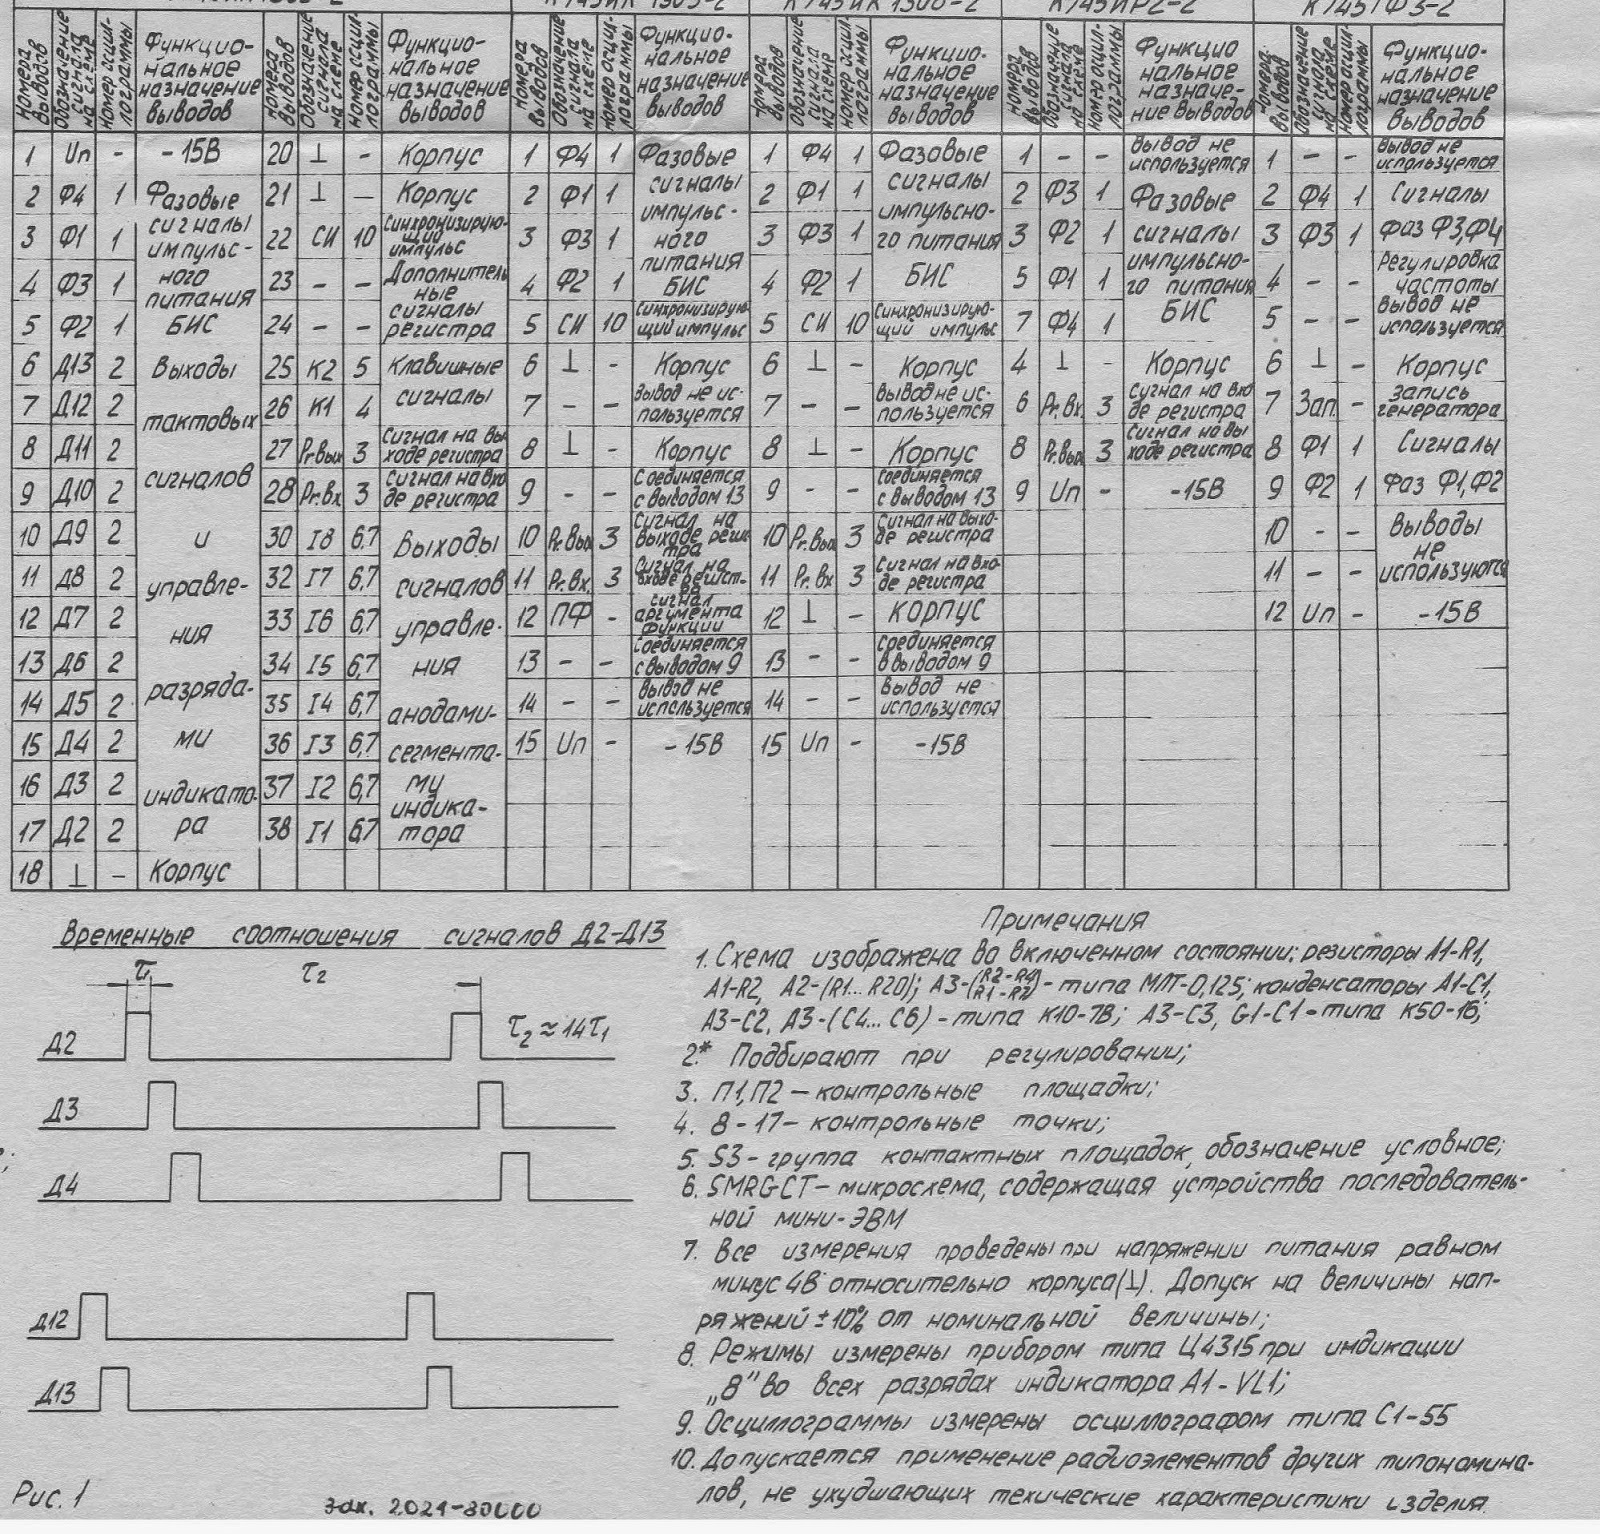 К745ИК1303-2 К745ИК1306-2 К745ИР2-2 К745ГФ3-2
Номера выводов Обозначение сигнала на схеме Номер осцил-лограммы Функцио-нальное назначение выводов
1 Uп - -15В
2 Ф4 1 Фазовые
3 Ф1 1 сигналы импульс-
4 Ф3 1 ного питания
5 Ф2 1 БИС
6 Д13 2 Выходы
7 Д12 2 тактовых
8 Д11 2
9 Д10 2 сигналов
10 Д9 2 и
11 Д8 2 управле-
12 Д7 2 ния
13 Д6 2
14 Д5 2 разряда-
15 Д4 2 ми
16 Д3 2 индикато-
17 Д2 2 ра
18 ⊥ - Корпус
Номеса выводов Обозначение сигнала на схеме Номер осцил-лограммы Функцио-нальное назначение выводов
20 ⊥ - Корпус
21 ⊥ - Корпус
22 СИ 10 Синхронизирую-щий импульс
23 - - Дополнитель ные
24 - - сигналы регистра
25 К2 5 Клавишные
26 К1 4 сигналы
27 Рг.вых 3 Сигнал на вы ходе регистра
28 Рг.вх 3 Сигнал на вхо де регистра
30 I8 6.7 Выходы
32 I7 6,7 сигналов
33 I6 6,7 управле-
34 I5 6,7 ния
35 I4 6,7 анодами-
36 I3 6,7 сегмента-
37 I2 6,7 ми индика-
38 I1 6,7 тора
Номера выводов Обозначение сигнала на схеме Номер осциллограммы Функцио-нальное назначение выводов
1 Ф4 1 Фазовые
2 Ф1 1 сигналы импульс-
3 Ф3 1 ного питания
4 Ф2 1 БИС
5 СИ 10 Синхронизирую-щий импульс
6 ⊥ - Корпус
7 - - Вывод не ис-пользуется
8 ⊥ - Корпус
9 - - Соединяется с выводом 13
10 Рг.вых 3 Сигнал на выходе регис-тра
11 Рг.вх. 3 Сигнал на входе регист-ра
12 ПФ - сигнал аргумента функции
13 - - Соединяется с выводом 9
14 - - Вывод не используется
15 Uп - -15В
Номера выводов Обозначение сигнала на схеме Номер осциллограммы Функцио-нальное назначение выводов
1 Ф4 1 Фазовые
2 Ф1 1 сигналы импульсно-
3 Ф3 1 го питания
4 Ф2 1 БИС
5 СИ 10 Синхронизирую-щий импульс
6 ⊥ - Корпус
7 - - Вывод не ис-пользуется
8 ⊥ - Корпус
9 - - Соединяется с выводом 13
10 Рг.вых 3 Сигнал на выхо-де регистра
11 Рг.вх 3 Сигнал на вхо-де регистра
12 ⊥ - Корпус
13 - - Соединяется в выводом 9
14 - - Вывод не используется
15 Uп - -15В
Номера выводов Обозначение сигнала на схеме Номер осцил-лограммы Функцио нальное назначе-ние выводов
1 - - Вывод не используется
2 Ф3 1 Фазовые
3 Ф2 1 сигналы
5 Ф1 1 импульсно-го питания
7 Ф4 1 БИС
4 ⊥ - Корпус
6 Рг.вх. 3 Сугнал на вхо де регистра
8 Рг.вых 3 Сигнал на вы ходе регистра
9 Uп - -15В
Номера выводов Обозначение сигнала на схеме Номер осцил-лограммы Функцио-нальное назначение выводов
1 - - Вывод не используется
2 Ф4 1 Сигналы
3 Ф3 1 Фаз Ф3,Ф4
4 - - Регулировка частоты
5 - - Вывод не используется
6 ⊥ - Корпус
7 Зап. - Запись генератора
8 Ф1 1 Сигналы
9 Ф2 1 Фаз Ф1,Ф2
10 - - Выводы не
11 - - используются
12 Uп - -15В
Временные соотношения сигналов Д2-Д13
τ1 τ2
Д2 τ2≈14τ1
Д3
Д4
Д12
Д13
Рис. 1
Зак. 2021-80000
Примечания
1. Схема изображена во включенном состоянии; резисторы А1-R1,
А1-R2, А2-(R1...R20); А3-(R2-R4 R1-R7)-типа МЛТ-0,125; конденсаторы А1-С1,
А3-С2, А3-(С4...С6)-типа К10-7В; А3-С3, G1-С1-типа К50-16;
2.* Подбирают при регулировании;
3. П1,П2-контрольные площадки;
4. 8-17-контрольные точки;
5. S3-группа контактных площадок, обозначение условное;
6. SMRGCT-микросхема, содержащая устройства последователь-
ной мини-ЭВМ
7. Все измерения проведены при напряжении питания равном
минус 4В относительно корпуса(⊥). Допуск на величины нап-
ряжений ±10% от номинальной величины;
8. Режимы измерены прибором типа Ц4315 при индикации
„8" во всех разрядах индикатора А1-VL1;
9. Осциллограммы измерены осциллографом типа С1-55
10. Допускается применение радиоэлементов других типономина-
лов, не ухудшающих технические характеристики изделия.